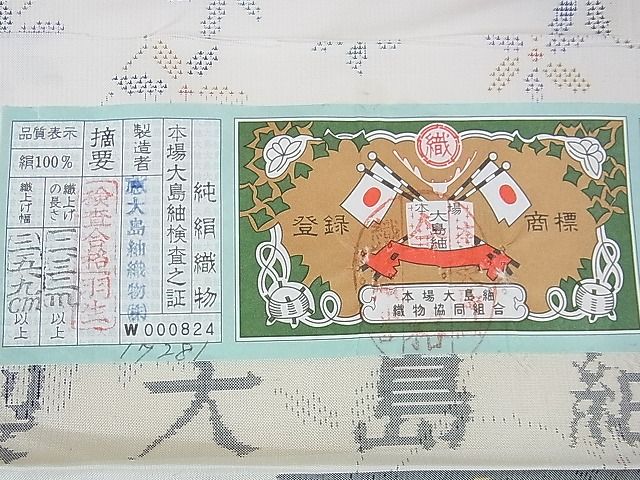 純絹織物
本場大島紬検査之証
製造者
大島紬織物㈱
摘要
検査合格
W000824
17281
品質表示
絹100%
織上げの長さ
一二、三m以上
織上げ幅
三五、九cm以上
織
登録
商標
本場
大島紬
本場大島紬
織物協同組合
大島紬